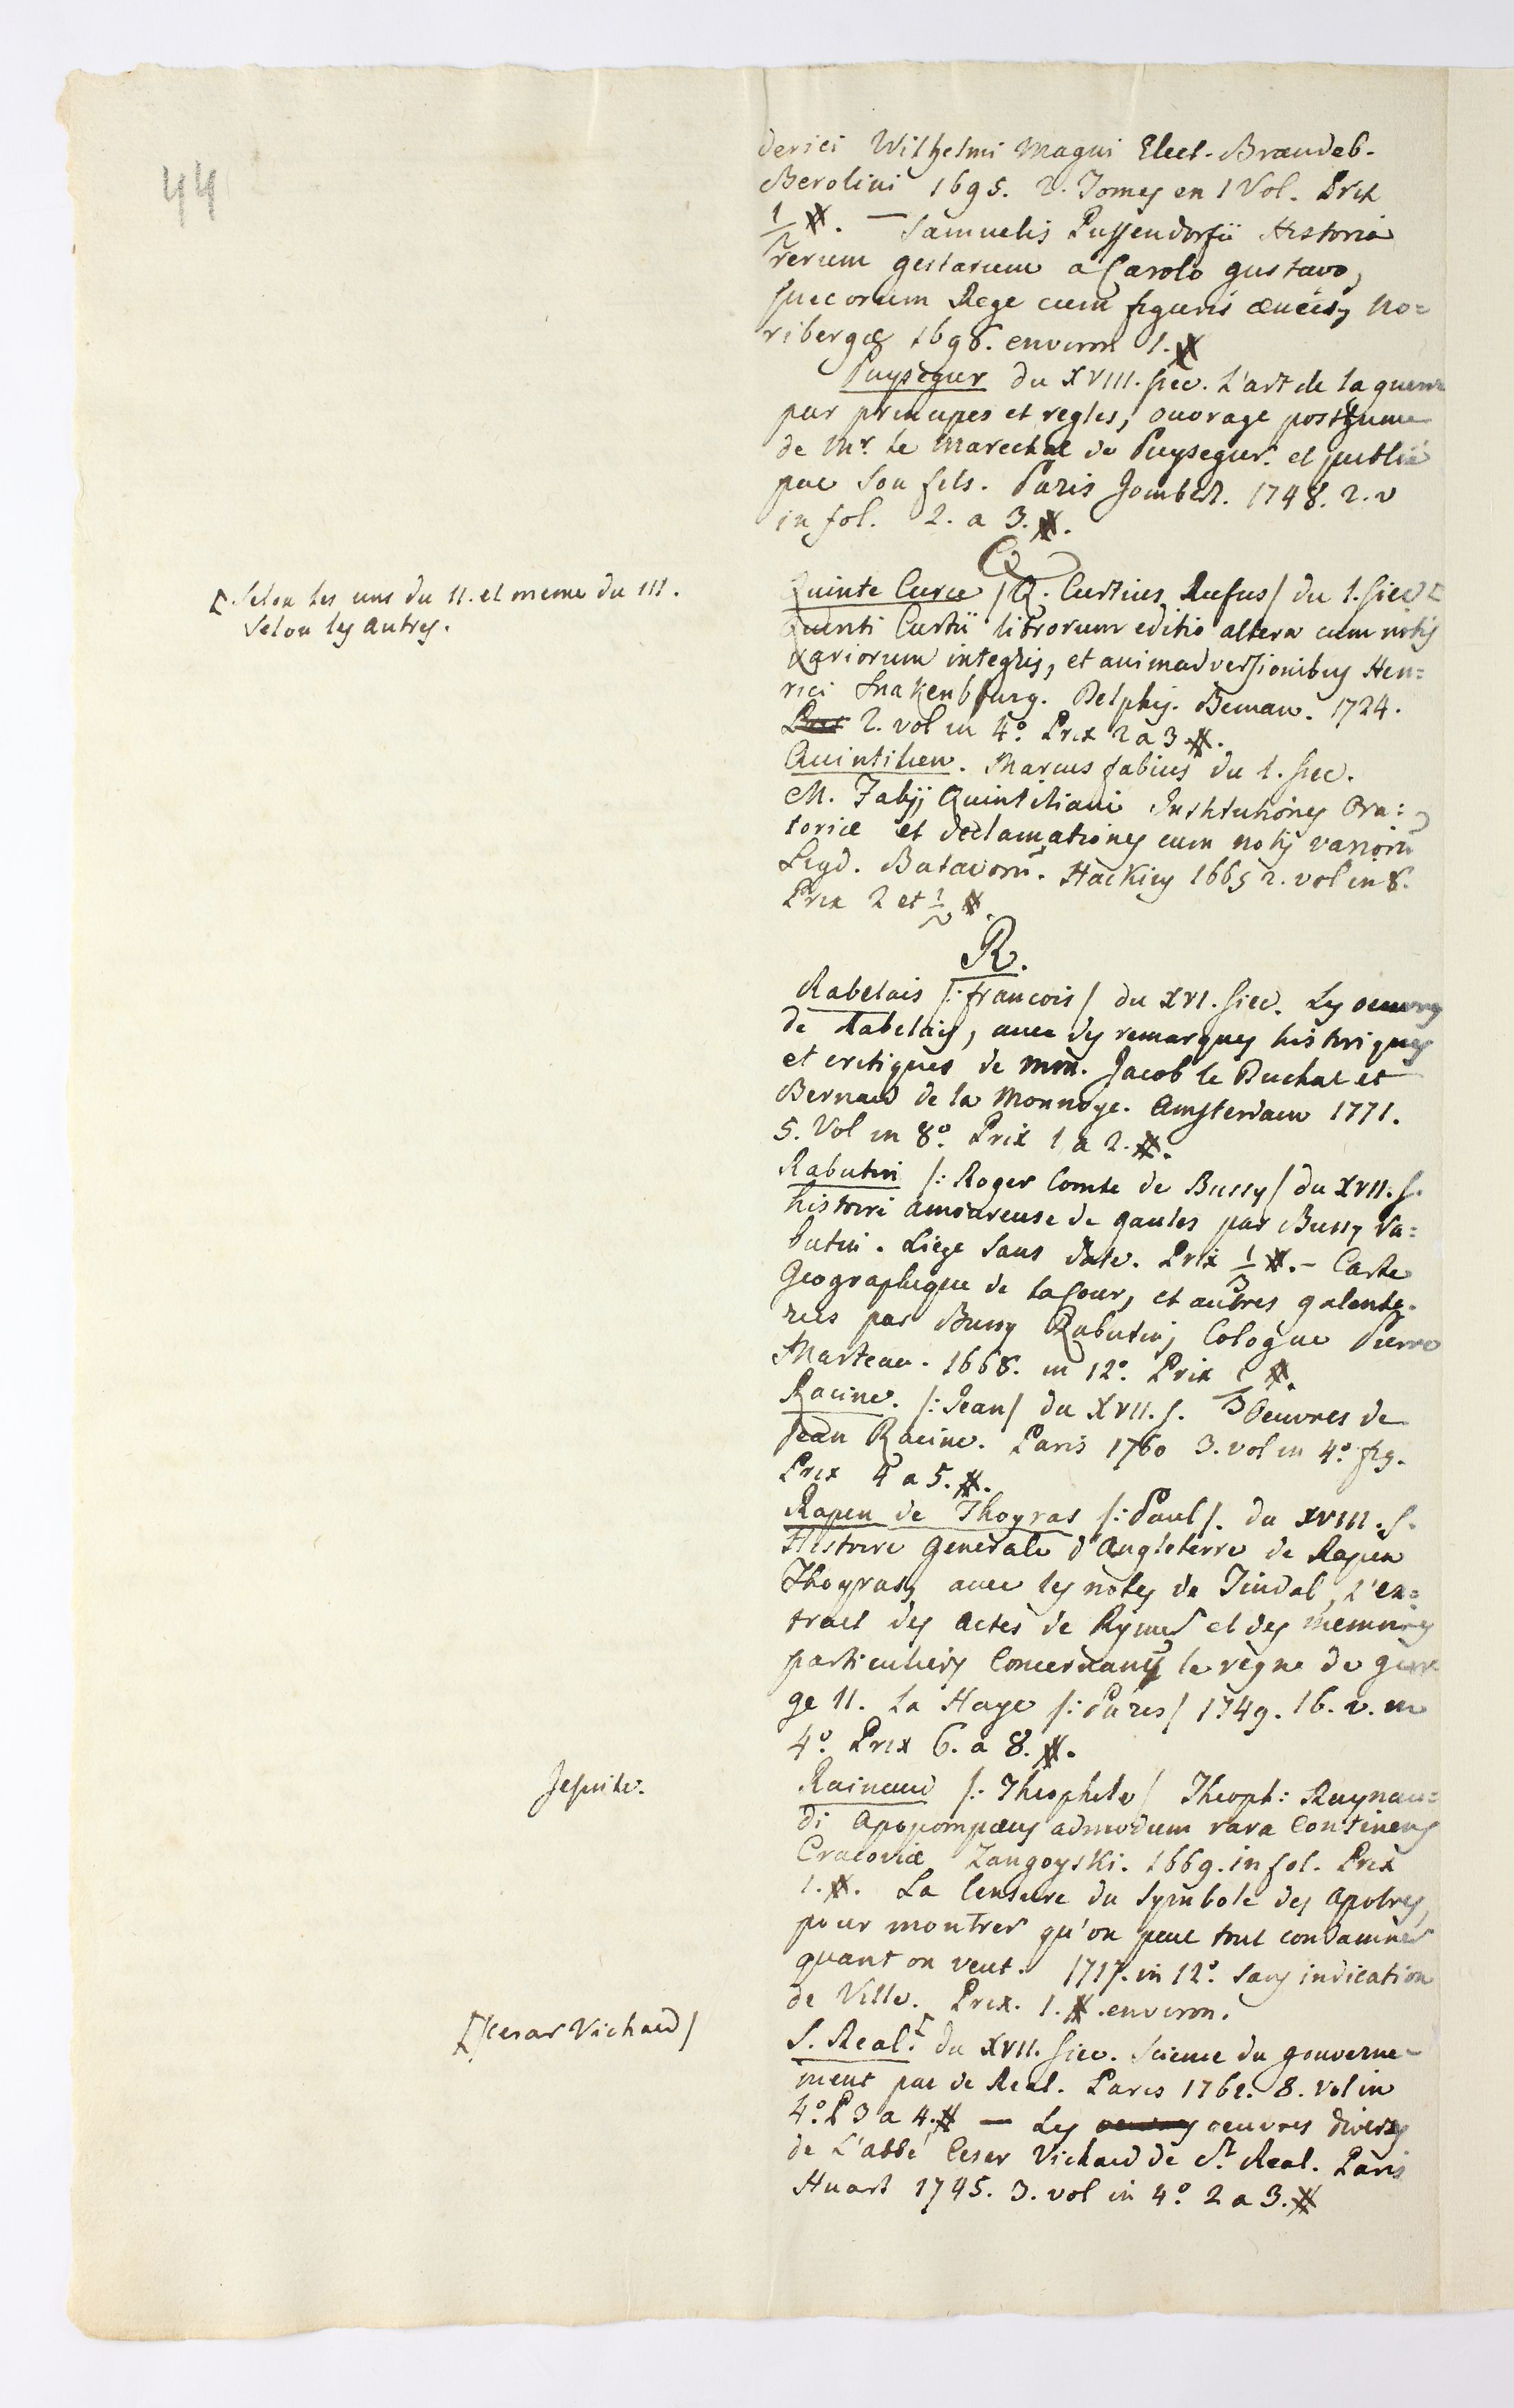 44
derici Wilhelmi Magni Elect. Brandeb.
Berolini 1695. 2. Tomes en 1 Vol. Prix
1/2 #. — Samuelis Puffendorfii Historia
rerum gestarum a Carolo gustavo,
Suecorum Rege cum figuris æneis, No=
ribergæ 1696. environ 1. #
Puysegur du XVIII. siec. L'art de la guerre
par principes et regles, ouvrage posthume
de Mr. le Marechal de Puysegur. et publié
par son fils. Paris Jombert. 1748. 2. v
in fol. 2. a 3. #.
Q
[ Selon les uns du II. et meme du III.
Selon les autres.
Quinte Curce /Q. Curtius Rufus/ du 1. siec [
Quinti Curtii librorum editio altera cum notis
variorum integris, et animadversionibus Hen=
rici Snakenburg. Delphis. Beman. 1724.
2. vol in 4º. Prix 2 a 3 #.
Quintilien. Marcus fabius du 1. siec.
M. Fabij Quintiliani Institutiones Ora=
toriæ et declamationes cum notis varioru
Lugd. Batavoru. Hackius 1665 2. vol in 8.
Prix 2 et 1/2 #.
R.
Rabelais /: francois / du XVI. siec. Les oeuvres
de Rabelais, avec des remarques historiques
et critiques de Mrs. Jacob le Duchat et
Bernard de la Monnoye. Amsterdam 1771.
5. Vol in 8º. Prix 1 a 2. #.
Rabutin /: Roger Comte de Bussy / du XVII. s.
histoire amoureuse de gaules par Bussy Ra=
butin. Liege sans date. Prix 1/3 #. – Carte
Geographique de la Cour, et autres galante-
ries par Bussy Rabutin, Cologne Pierre
Marteau. 1668. in 12º. Prix 1/3 #.
Racine. /: Jean / du XVII. s. Oeuvres de
Jean Racine. Paris 1760 3. vol in 4º. fig.
Prix 4 a 5. #.
Rapin de Thoyras /: Paul /. du XVIII. s.
Histoire generale d'Angleterre de Rapin
Thoyras, avec les notes de Tindal, l'ex=
trait des Actes de Rymer et des memoires
particuliers concernants le règne de geor
ge II. La Haye /: Paris / 1749. 16. v. in
4º. Prix 6. a 8. #.
Jesuite.
Rainaud /: Theophile / Theoph: Raynau=
di Apopompæus admodum rara continens
Cracoviæ Zangoyski. 1669. in fol. Prix
1. #. La censure du Symbole des Apotres,
pour montrer qu'on peut tout condamner
quant on veut. 1717. in 12º. sans indication
de Ville. Prix. 1. #. environ.
[/Cesar Vichard/
S. Real. [ du XVII. siec. Science du gouverne-
ment par de Real. Paris 1762. 8. vol in
4º. P 3 a 4. # — Les oeuvres diverses
de L'abbé Cesar Vichard de St. Real. Paris
Huart 1745. 3. vol in 4º 2 a 3. #